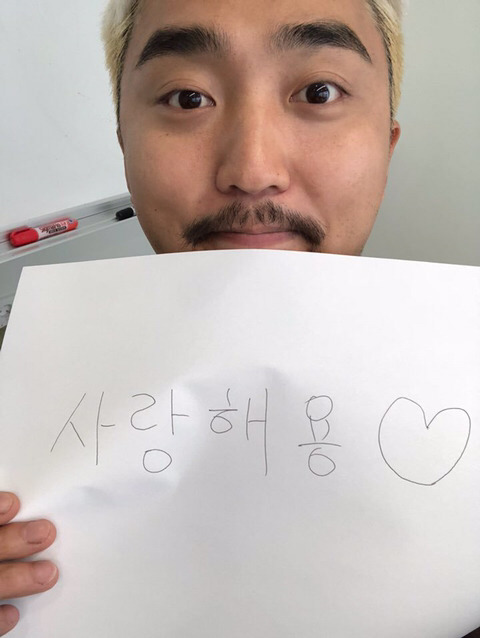 사랑해용♡